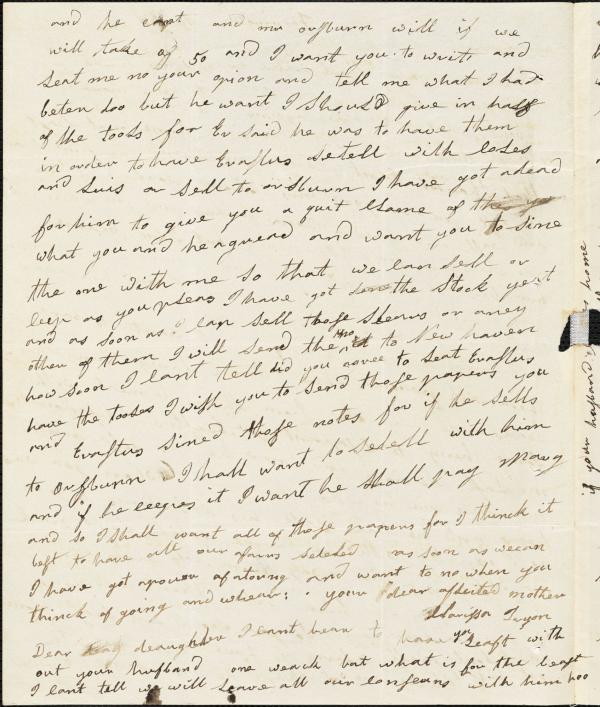 and he cant and mr orsburn will if we
will take of 50 and I want you to write and
leat me no your opion and tell me what I had
beten doo but he want I should give in half
of the tools for Er said he was to have them
in order to have Erastus setell with loses
and Luis or sell to orsburn I have got a dead
for him to give you a quit Clame of
what you and he agread and want you to sine
the one with me so that we can sell or
ceep as you pleas I have got the stock yeat
and as soon as I can sell those shears or aney
other of them I will send the to New haven
how soon I cant tell did you agree to leat Erastus
have the tooles I wish you to send those papers you
and Erastus sined those notes for if he sells
to Orsburn I shall want to setell with him
and if he ceepes it I want he shall pay Mary
and so I shall want all of those papers for I thinck it
best to have all our afairs seteled as soon as we can
I have got apower of atorny and want to no when you
thinck of going and whear: your dear afected mother
Clarissa Tryon
Dear deaughter I cant bear to have you Leaft with
out your husband one weack but what is for the best
I cant tell we will Leave all our conserns with him hoo
if your husband is home